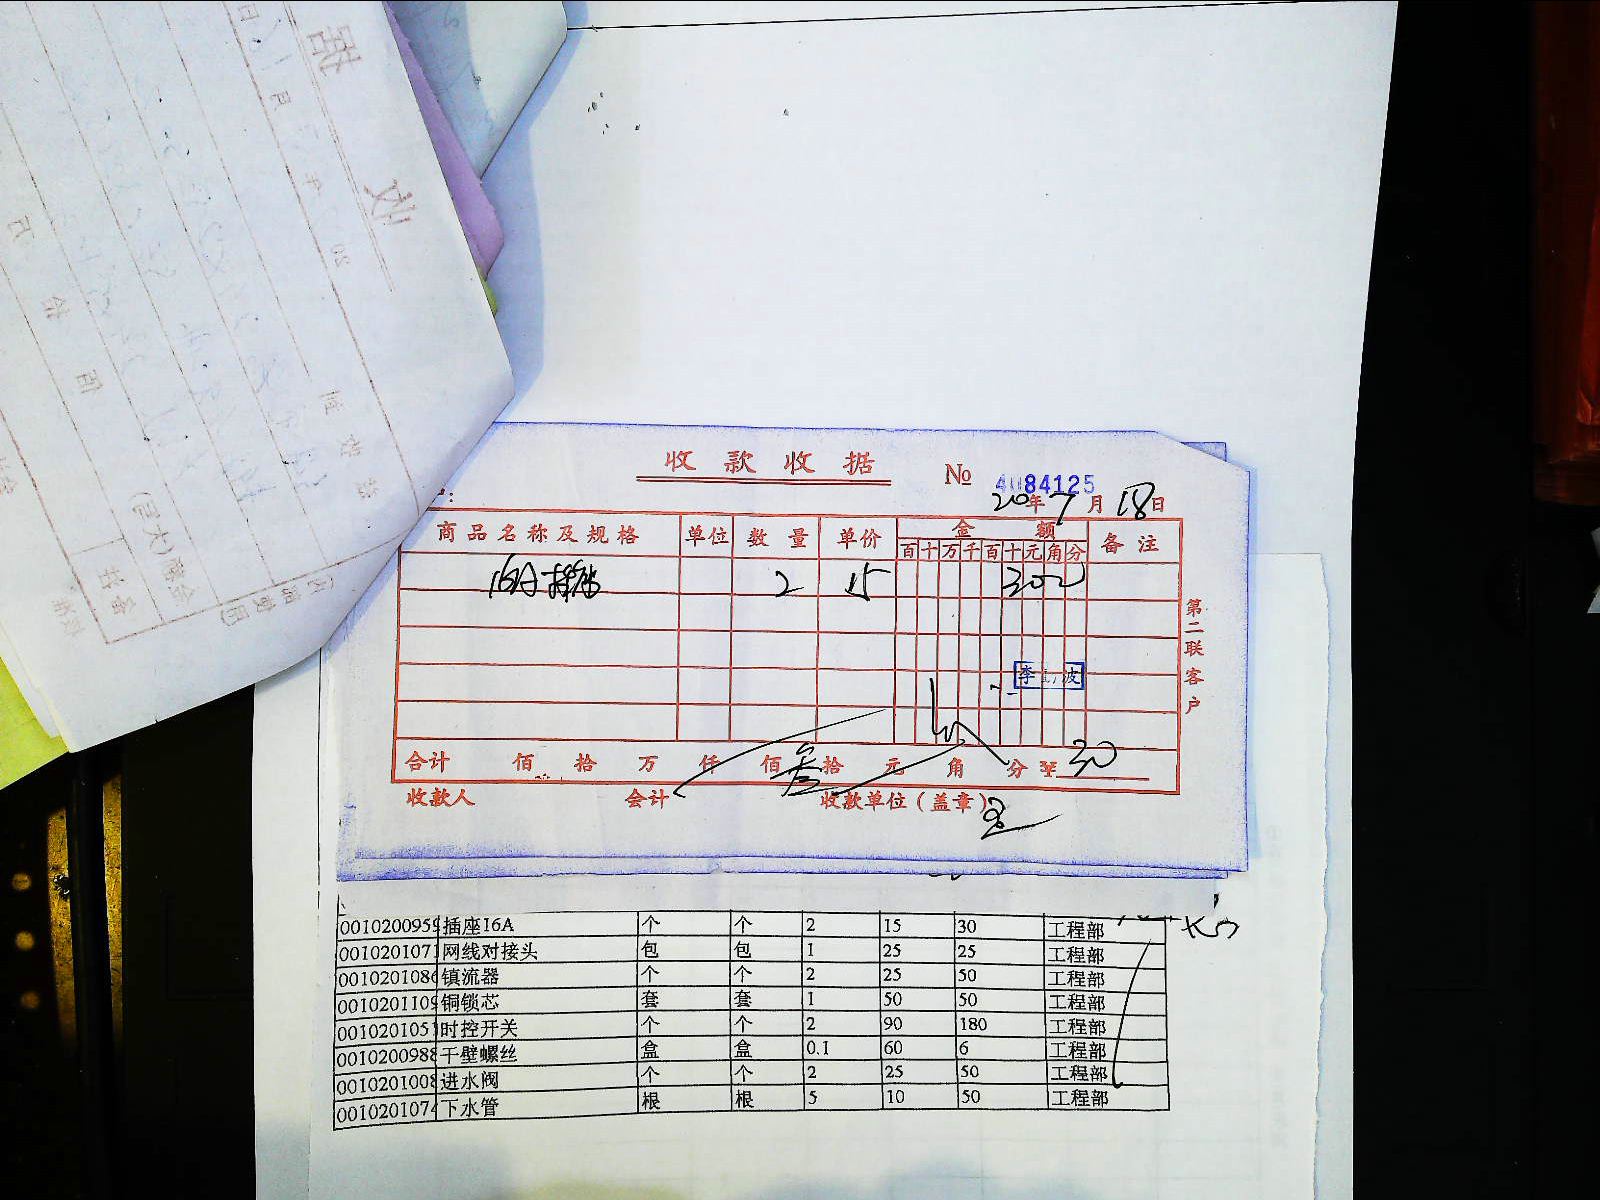 收款收据
No 4084125
20年7月18日
商品名称及规格 单位 数量 单价 金额 备注
百十万千百十元角分
16A插座 2 15 3000
李 波
合计 佰 拾 万 仟 佰 叁拾 元 角 分 ¥ 30
收款人 会计 收款单位(盖章)
第二联客户
001020095 插座16A 个 个 2 15 30 工程部
001020107 网线对接头 包 包 1 25 25 工程部
001020108 镇流器 个 个 2 25 50 工程部
001020110 铜锁芯 套 套 1 50 50 工程部
001020105 时控开关 个 个 2 90 180 工程部
001020098 干壁螺丝 盒 盒 0.1 60 6 工程部
001020100 进水阀 个 个 2 25 50 工程部
001020107 下水管 根 根 5 10 50 工程部